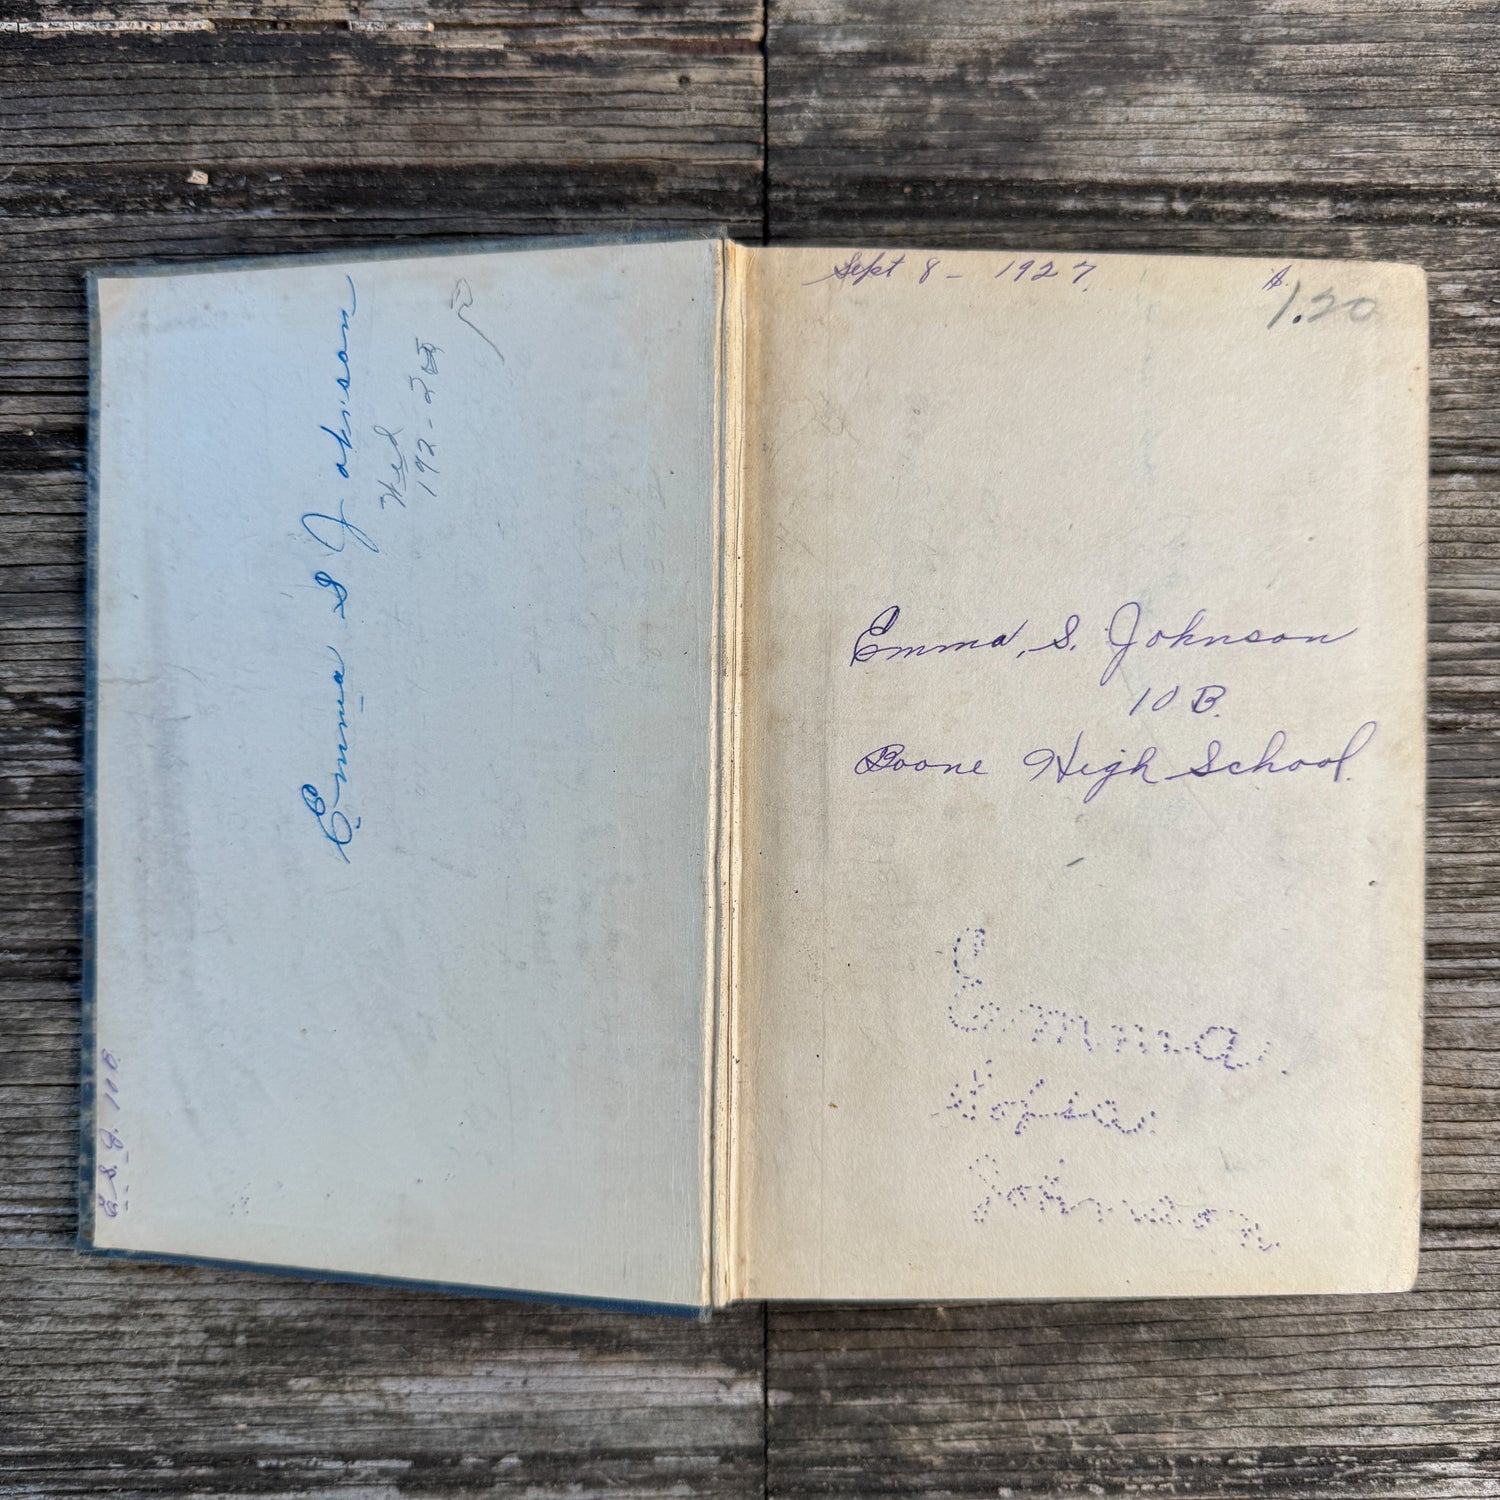 Emma S Johnson
Wed
192-
E. S. J. 10B.
Sept 8 - 1927.
1.20
Emma, S. Johnson
10 B.
Boone High School.
Emma
Johnson